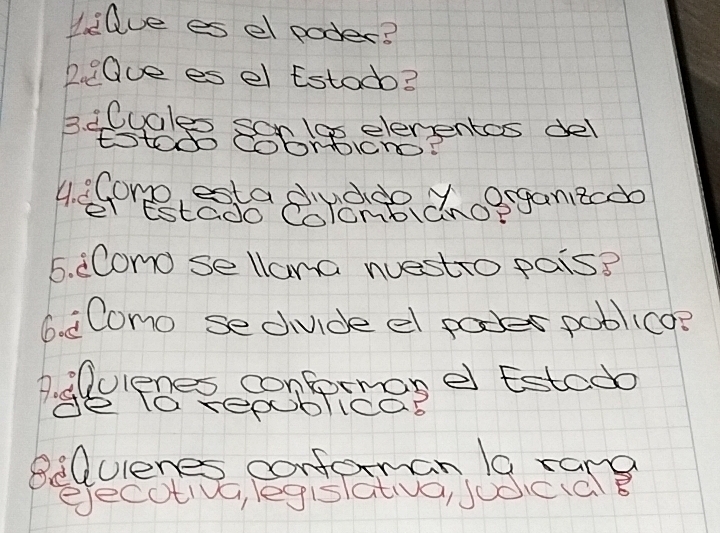 1.¿Que es el poder?
2.¿Que es el Estado?
3.¿Cuales son los elementos del
Estado Colombiano?
4.¿Como esta dividido y organizado
el Estado Colombiano?
5.¿Como se llama nuestro país?
6.¿Como se divide el poder publico?
7.¿Quienes conforman el Estado
de la republica?
8.¿Quienes conforman la rama
ejecutiva, legislativa, judicial?